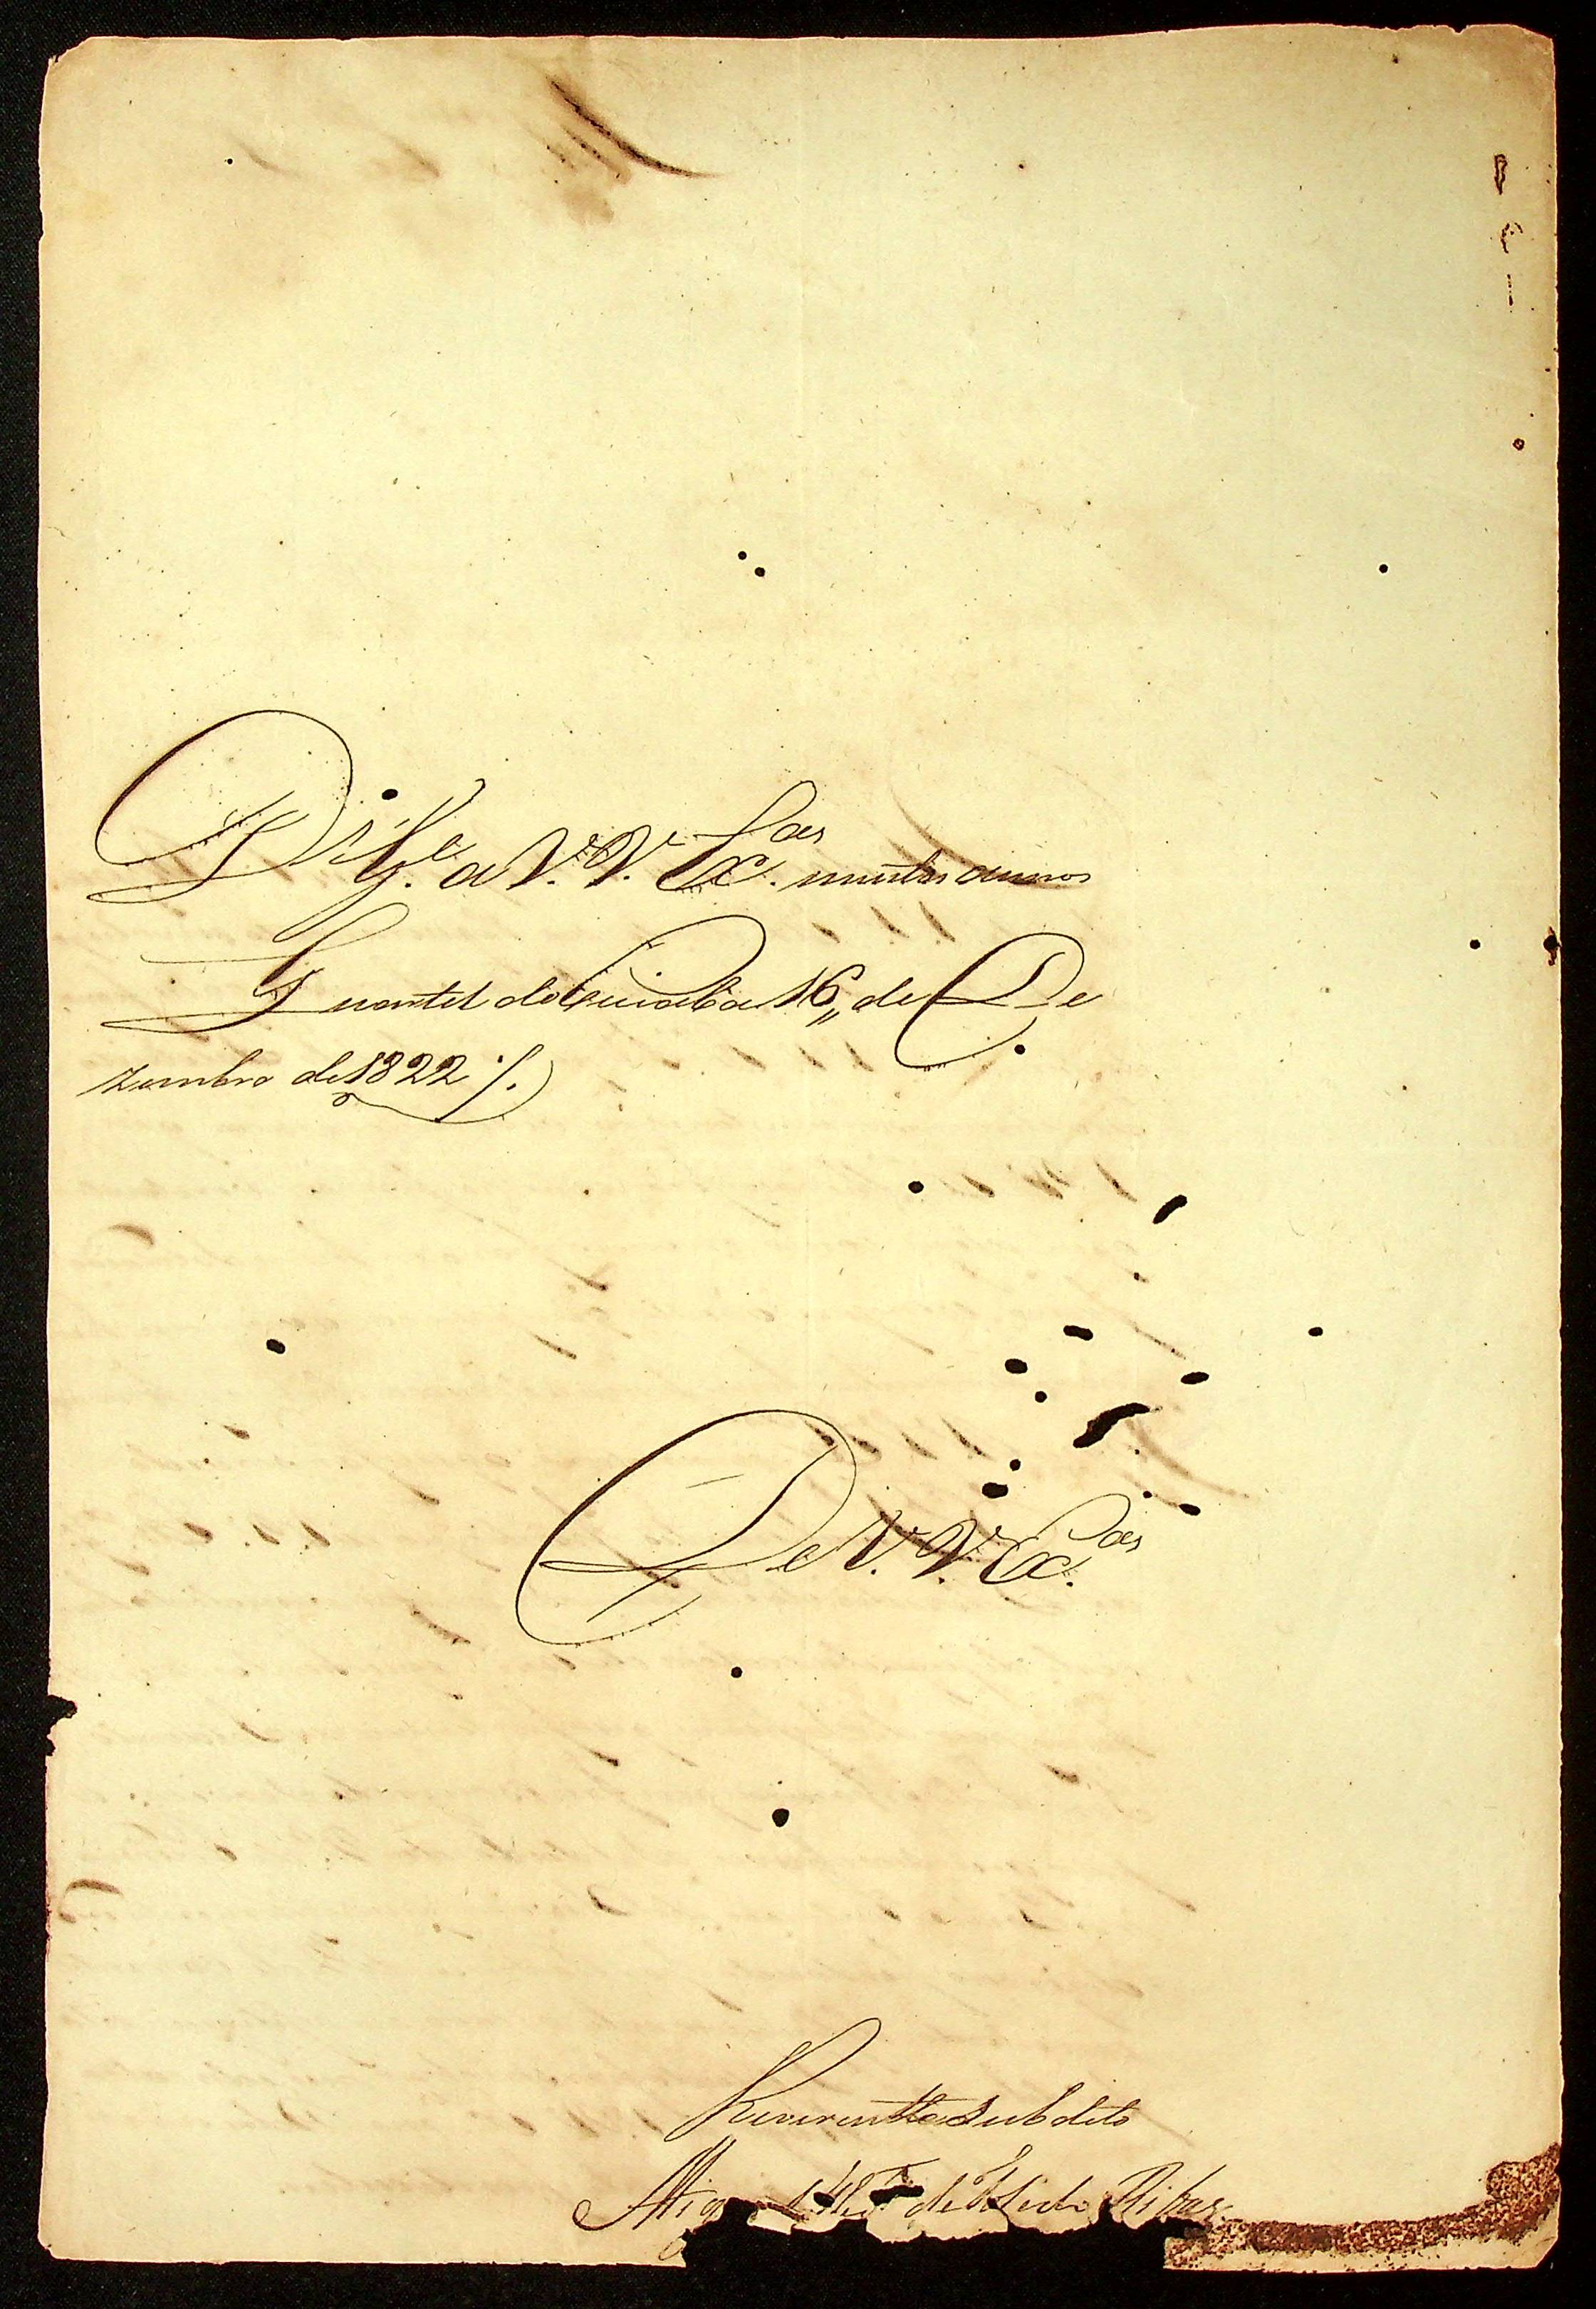 D.s G.e a V. V. Ex.as muitos annos
Quartel do Cuiaba 16,, de De
zembro de 1822 ./.
De V. V. Ex.as
Reverente Subdito
de Toledo Ribas